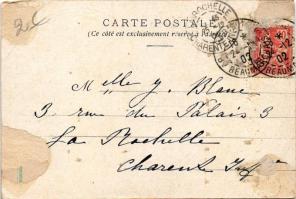 2€
CARTE POSTALE
(Ce côté est exclusivement réservé à l'adresse)
LA ROCHELLE
02
Melle y. Blanc
3 rue du Palais 3
La Rochelle
Charente Infre